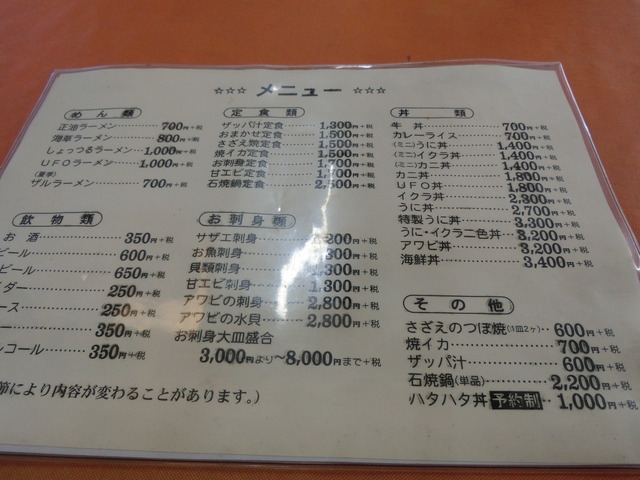 ☆☆☆ メニュー ☆☆☆
めん類
正油ラーメン 700円+税
海草ラーメン 800円+税
しょっつるラーメン 1,000円+税
UFOラーメン 1,000円+税
(夏季)
ザルラーメン 700円+税
飲物類
お酒 350円+税
ビール 600円+税
ビール 650円+税
イダー 250円+税
ース 250円+税
ー 350円+税
ルコール 350円+税
節により内容が変わることがあります。)
定食類
ザッパ汁定食 1,300円+税
おまかせ定食 1,500円+税
さざえ類定食 1,500円+税
焼イカ定食 1,500円+税
お刺身定食 1,700円+税
甘エビ定食 1,700円+税
石焼鍋定食 2,500円+税
お刺身類
サザエ刺身 1,200円+税
お魚刺身 1,300円+税
貝類刺身 1,300円+税
甘エビ刺身 1,300円+税
アワビの刺身 2,800円+税
アワビの水貝 2,800円+税
お刺身大皿盛合
3,000円より〜8,000円まで+税
丼類
牛丼 700円+税
カレーライス 700円+税
(ミニ)うに丼 1,400円+税
(ミニ)イクラ丼 1,400円+税
(ミニ)カニ丼 1,400円+税
カニ丼 1,800円+税
UFO丼 1,800円+税
イクラ丼 2,300円+税
うに丼 2,700円+税
特製うに丼 3,300円+税
うに・イクラ二色丼 3,200円+税
アワビ丼 3,200円+税
海鮮丼 3,400円+税
その他
さざえのつぼ焼(1皿2ヶ) 600円+税
焼イカ 700円+税
ザッパ汁 600円+税
石焼鍋(単品) 2,200円+税
ハタハタ丼 予約制 1,000円+税